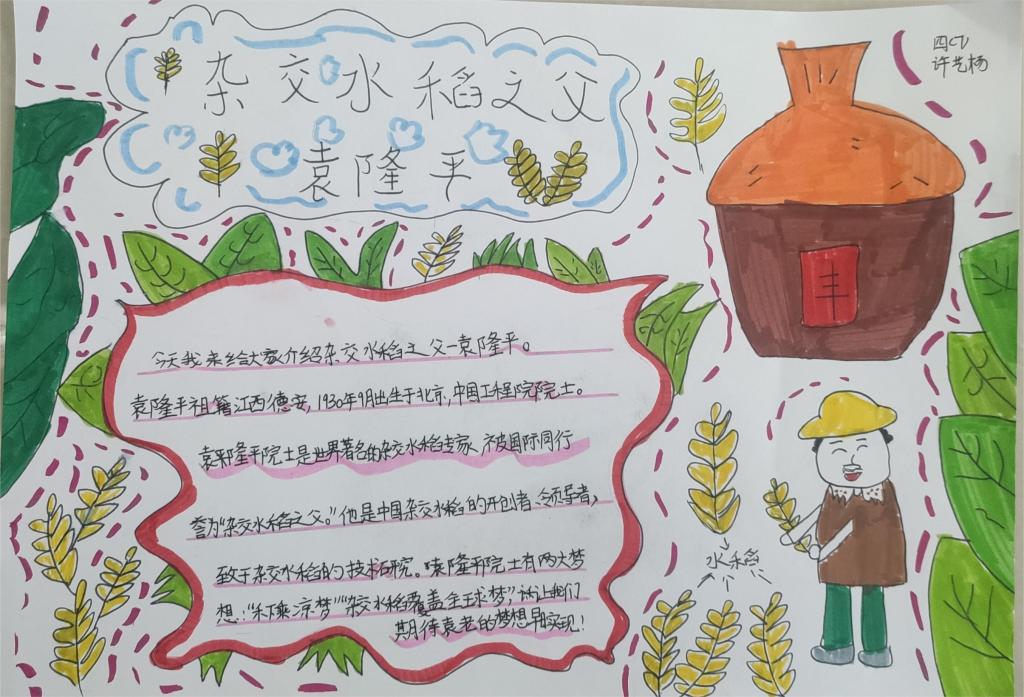 杂交水稻之父
袁隆平
四(7)
许艺杨
丰
今天我来给大家介绍杂交水稻之父-袁隆平。
袁隆平祖籍江西德安,1930年9月出生于北京,中国工程院院士。
袁隆平院士是世界著名的杂交水稻专家、被国际同行
誉为“杂交水稻之父。”他是中国杂交水稻的开创者、领导者,
致于杂交水稻的技术研院。袁隆平院士有两大梦
想:“禾下乘凉梦”“杂交水稻覆盖全球梦”,让我们
期待袁老的梦想早日实现!
水稻